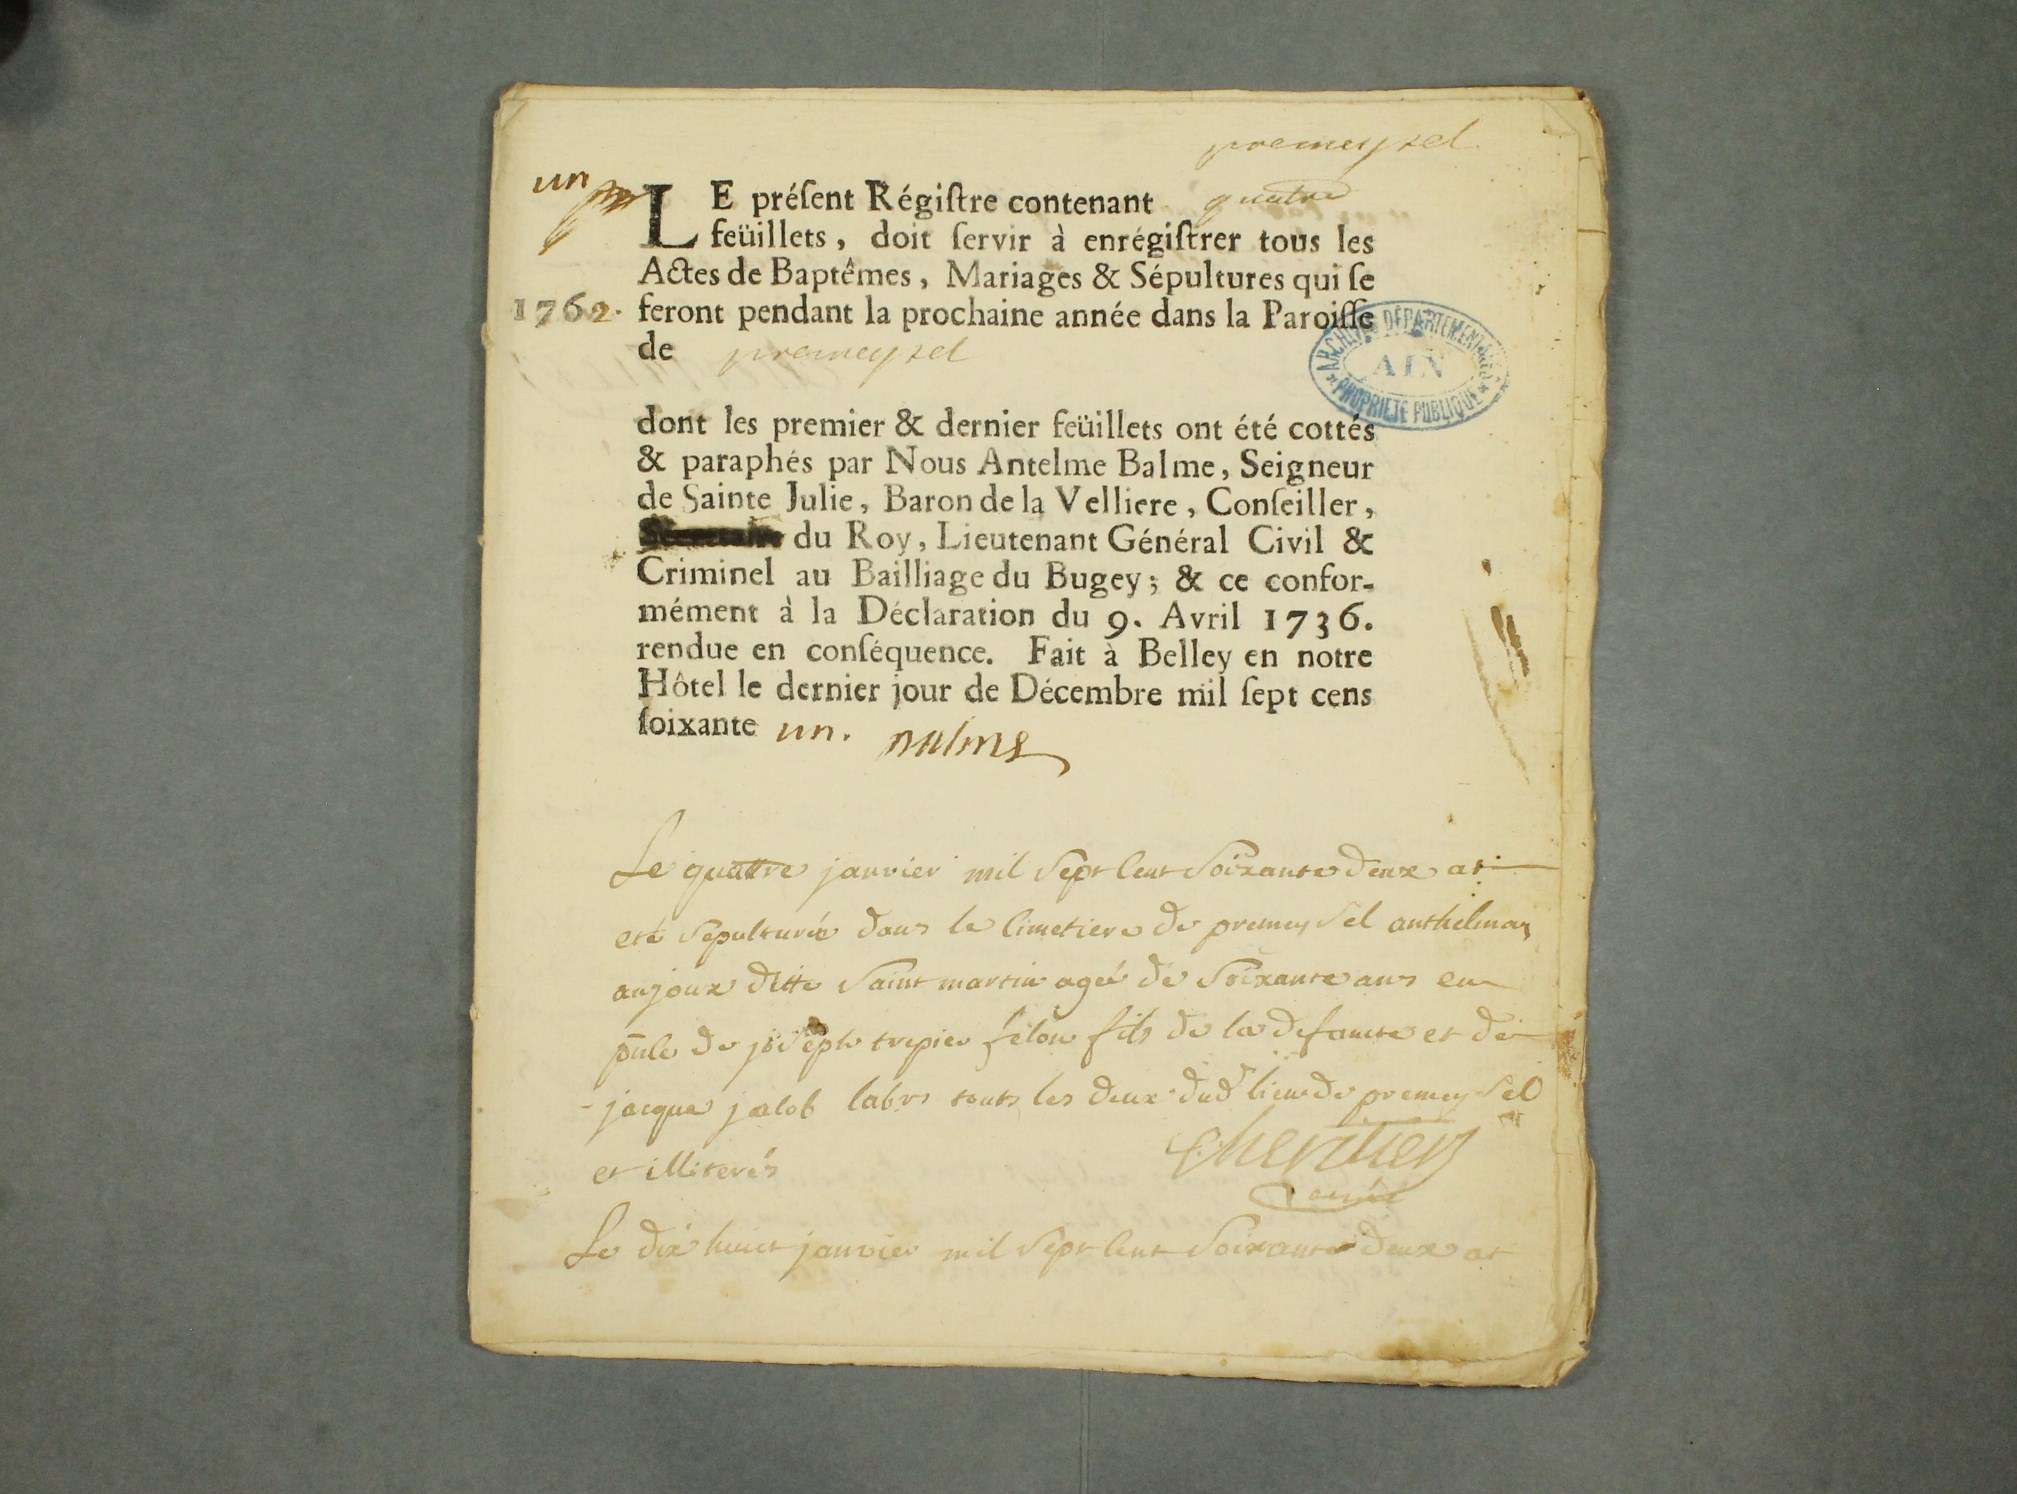 premeyzel
un
LE préſent Régiſtre contenant quatre
feüillets, doit ſervir à enrégiſtrer tous les
Actes de Baptêmes, Mariages & Sépultures qui ſe
1762. feront pendant la prochaine année dans la Paroiſſe
de premeyzel
ARCHIVES DÉPARTEMENTALES
AIN
PROPRIÉTÉ PUBLIQUE
dont les premier & dernier feüillets ont été cottés
& paraphés par Nous Antelme Balme, Seigneur
de Sainte Julie, Baron de la Velliere, Conſeiller,
du Roy, Lieutenant Général Civil &
Criminel au Bailliage du Bugey; & ce confor-
mément à la Déclaration du 9. Avril 1736.
rendue en conſéquence. Fait à Belley en notre
Hôtel le dernier jour de Décembre mil ſept cens
ſoixante un. Balme
Le quattre janvier mil sept cent soixante deux at
eté sepulturée dans le cimetiere de premeysel anthelma
anjoux ditte saint martin ageé de soixante ans en
pnce de joseph trepier felon fils de la defunte et de
jacque jacob labrs touts les deux dud lieu de premeysel
et illiterés
curé
Le dix huict janvier mil sept cent soixante deux at